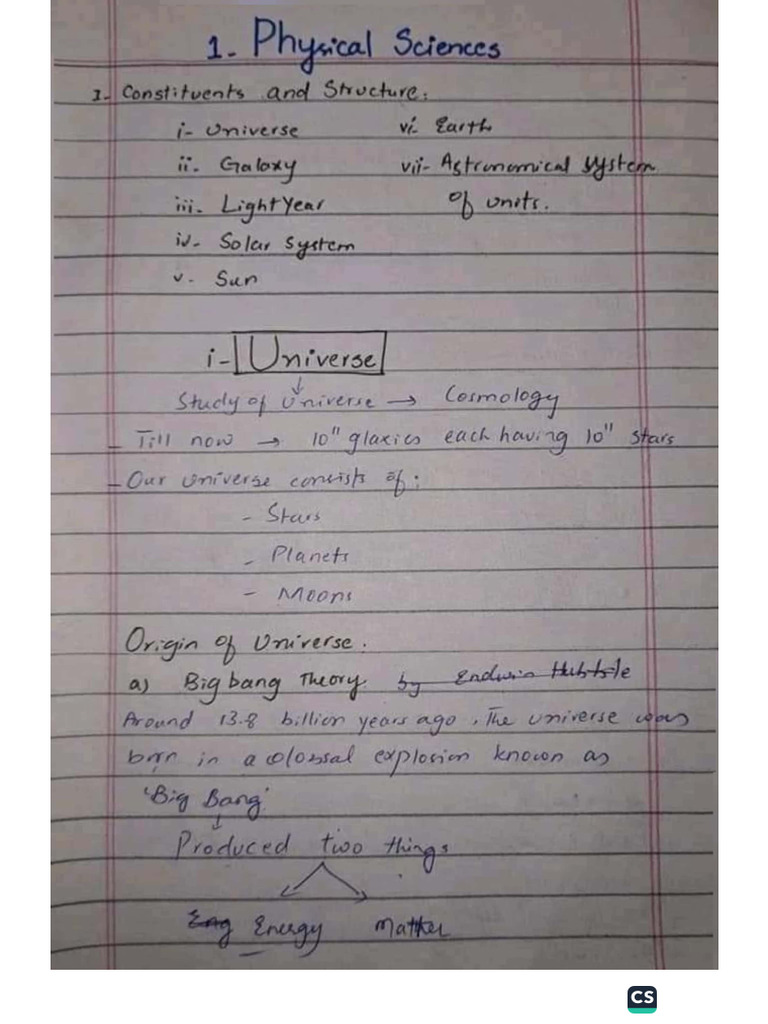 1- Physical Sciences
I- Constituents and Structure:
i- Universe vi- Earth
ii- Galaxy vii- Astronomical system
iii- Light Year of units.
iv- Solar System
v- Sun
i- Universe
Study of Universe → Cosmology
- Till now → 10¹¹ glaxies each having 10¹¹ stars
- Our Universe consists of:
- Stars
- Planets
- Moons
Origin of Universe:
a) Big bang Theory. by Endwin Hubble
Around 13.8 billion years ago, The universe was
born in a colossal explosion known as
'Big Bang'
Produced two things
Eng Energy Matter
CS